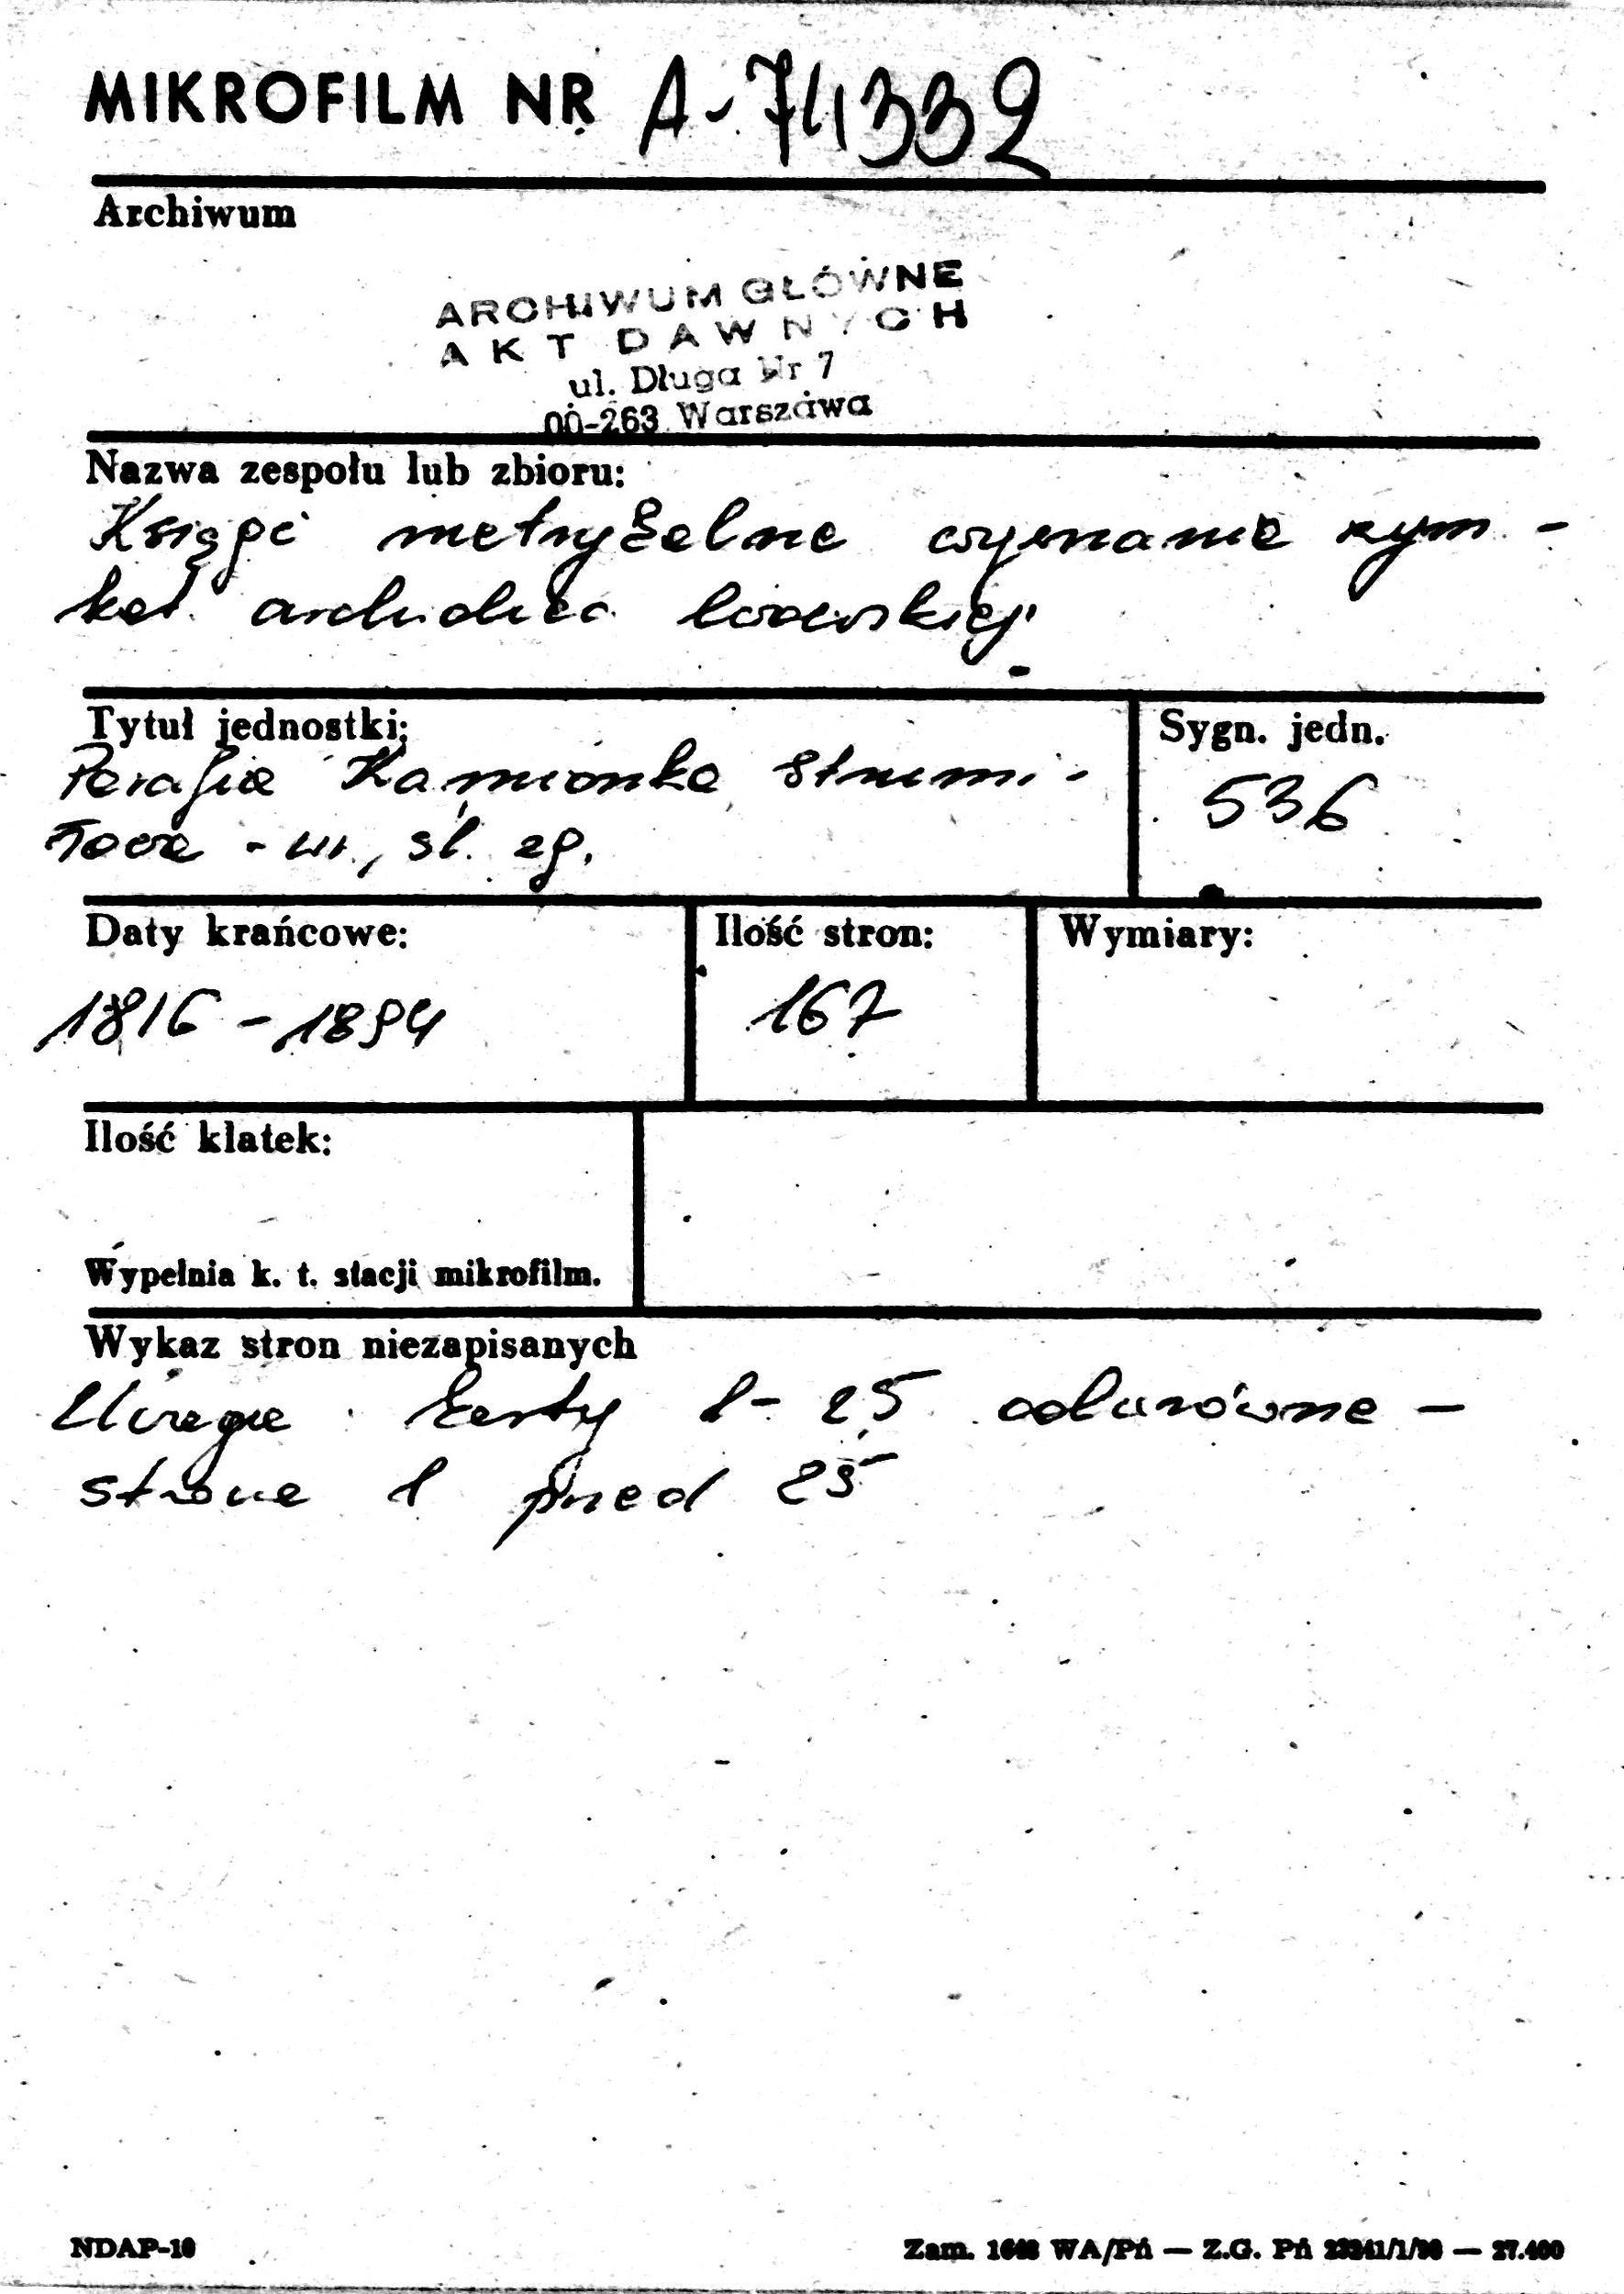 MIKROFILM NR A-74332
Archiwum
ARCHIWUM GŁÓWNE
AKT DAWNYCH
ul. Długa Nr 7
00-263 Warszawa
Nazwa zespołu lub zbioru:
Księgi metrykalne wyznania rzym-
kat. archidiec. lwowskiej
Tytuł jednostki:
Parafia Kamionka Strumi-
łowa - ur., śl. zg.
Sygn. jedn.
536
Daty krańcowe:
1816 - 1894
Ilość stron:
167
Wymiary:
Ilość klatek:
Wypełnia k. t. stacji mikrofilm.
Wykaz stron niezapisanych
Uwaga: karty 1- 25 odwrócone -
strona 1 przed 25
NDAP-10
Zam. WA/Pń — Z.G. Pń — 27.400